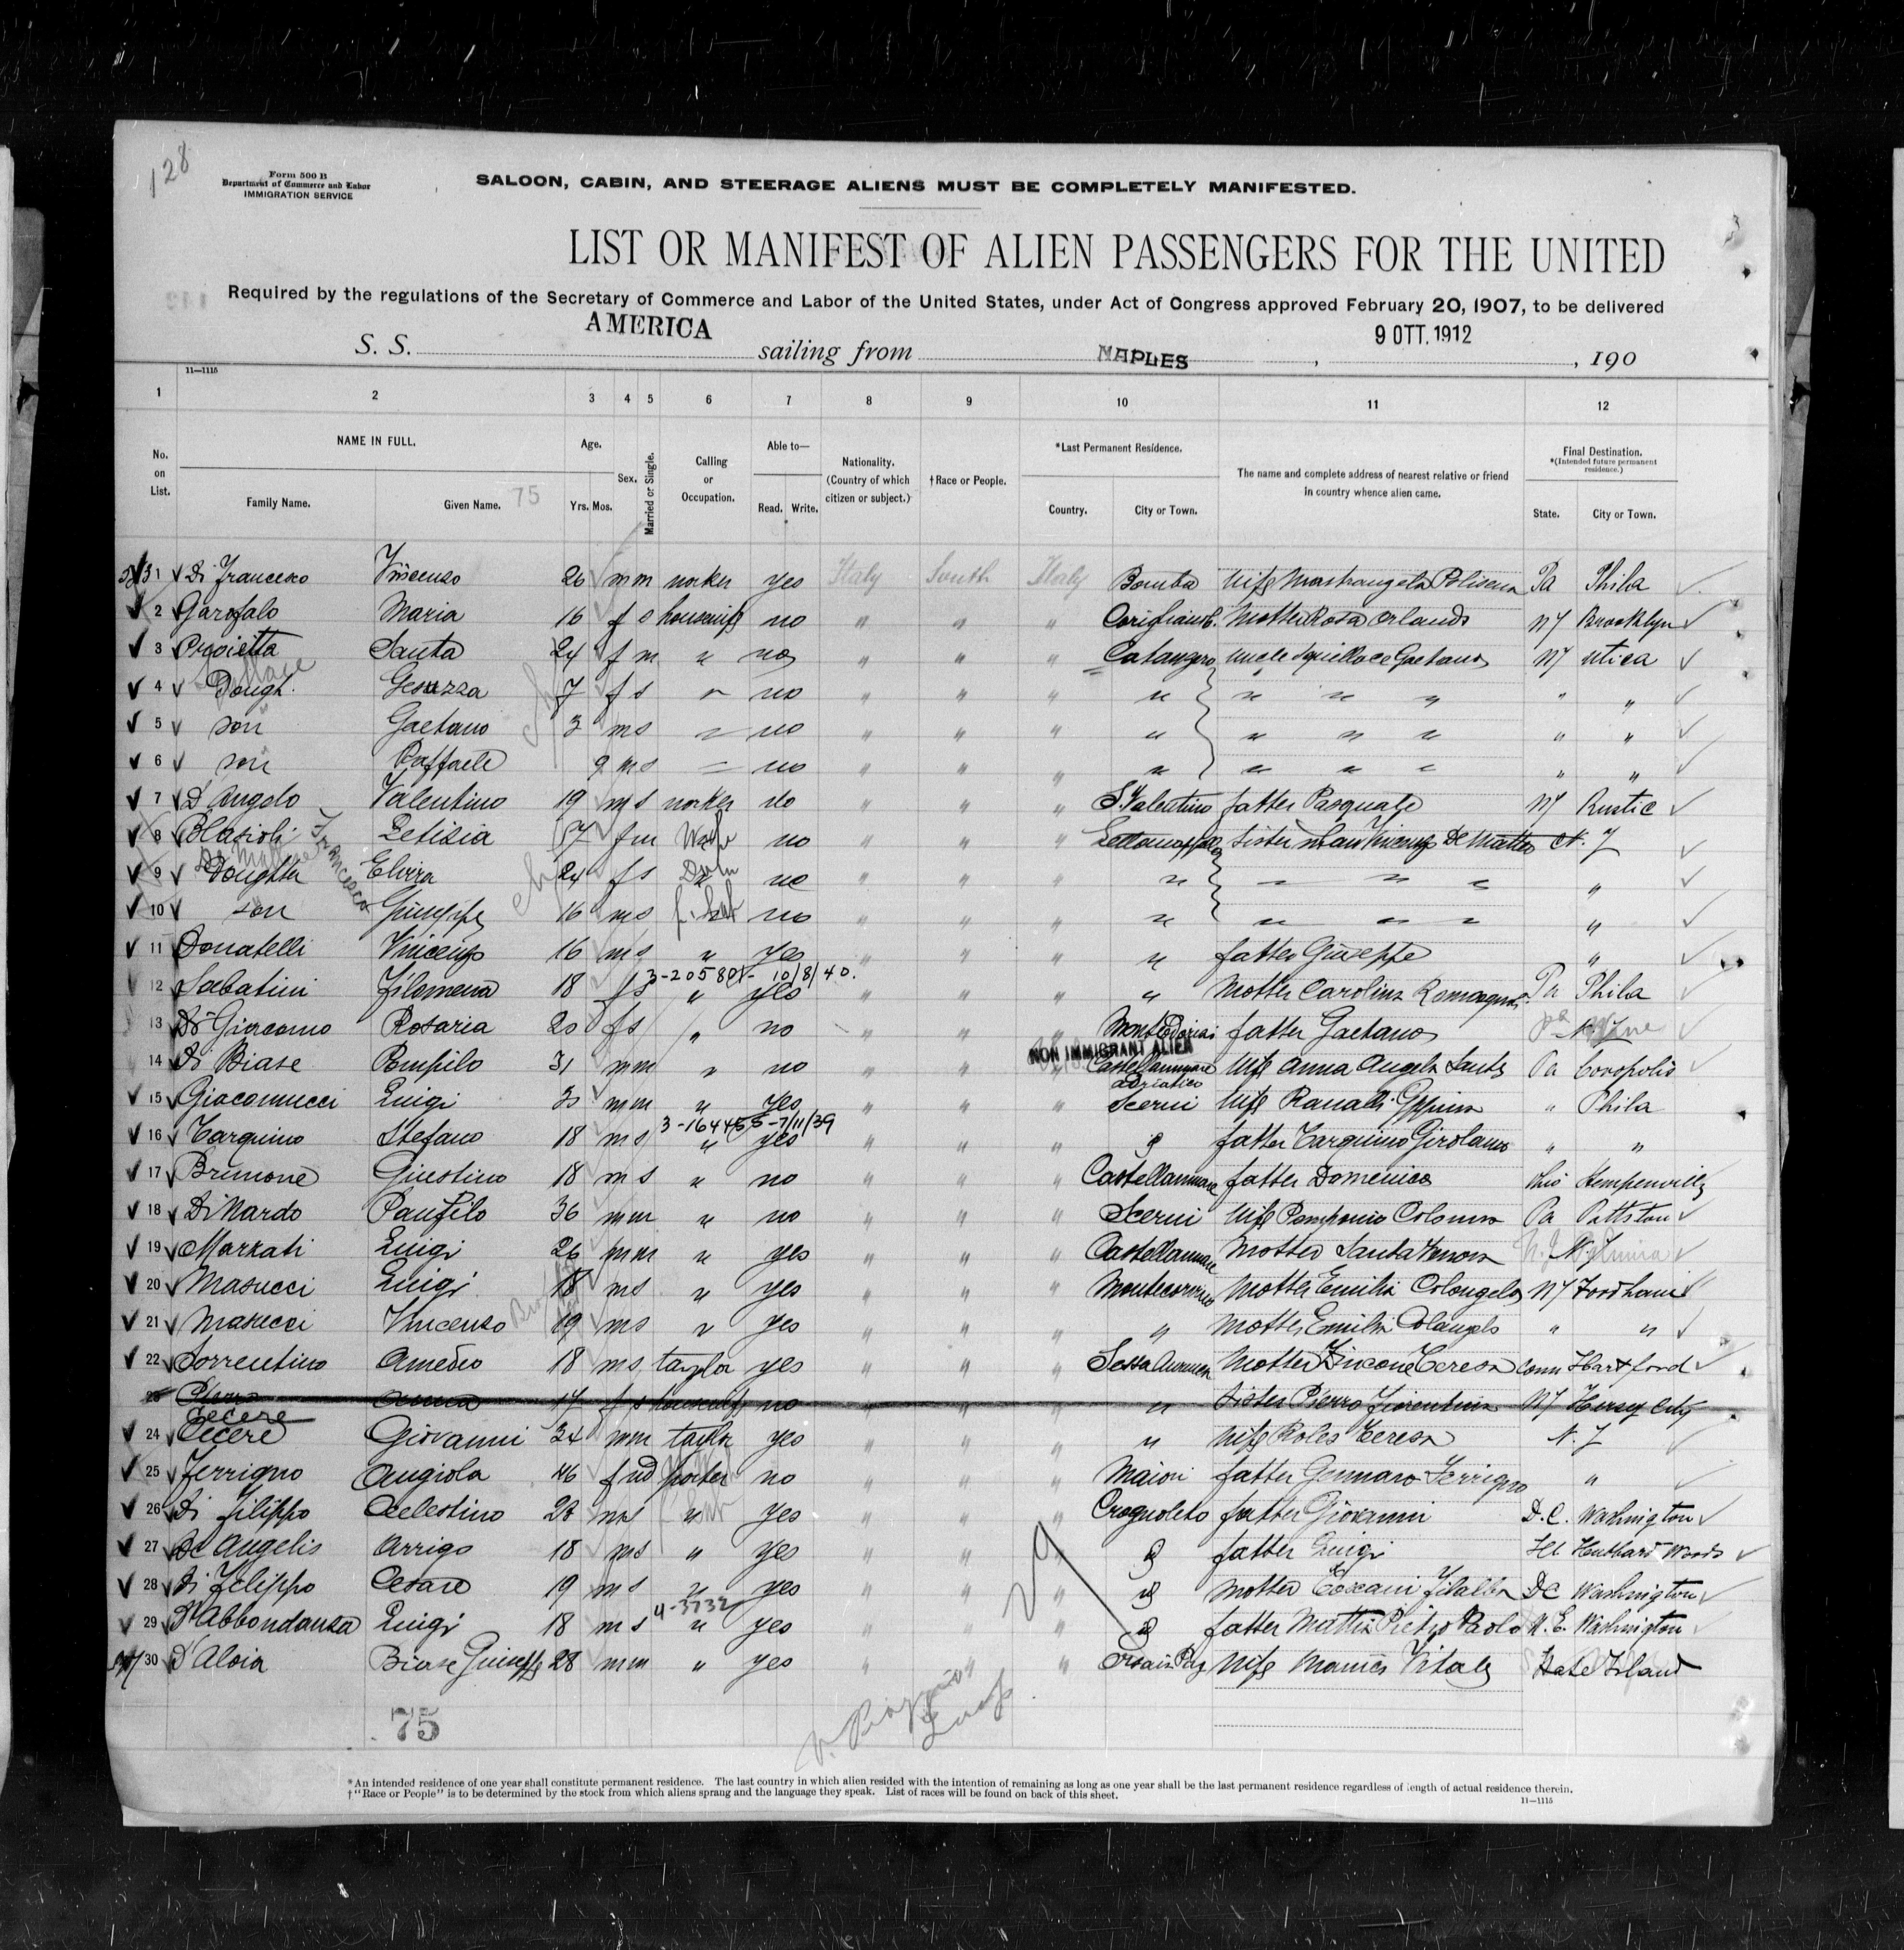 128
Form 500 B
Department of Commerce and Labor
IMMIGRATION SERVICE
SALOON, CABIN, AND STEERAGE ALIENS MUST BE COMPLETELY MANIFESTED.
LIST OR MANIFEST OF ALIEN PASSENGERS FOR THE UNITED
Required by the regulations of the Secretary of Commerce and Labor of the United States, under Act of Congress approved February 20, 1907, to be delivered
S. S. AMERICA sailing from NAPLES, 9 OTT. 1912, 190
11—1115
1 2 3 4 5 6 7 8 9 10 11 12
No. on List.
NAME IN FULL.
Family Name. Given Name. 75
Age.
Yrs. Mos.
Sex.
Married or Single.
Calling or Occupation.
Able to—
Read. Write.
Nationality. (Country of which citizen or subject.)
†Race or People.
*Last Permanent Residence.
Country. City or Town.
The name and complete address of nearest relative or friend in country whence alien came.
Final Destination.
*(Intended future permanent residence.)
State. City or Town.
1 Di Francesco Vincenzo 26 m m worker yes Italy South Italy Bomba wife Mastrangelo Polisena Pa Phila
2 Garofalo Maria 16 f s housewife no " " " mother Rosa Orlando NY Brooklyn
3 Proietta Santa 24 f m " no " " " Catanzaro uncle Squillace Gaetano NY Utica
4 Dough. 7 f s " no " " " " " " " " "
5 son Gaetano 3 m s " no " " " " " " " " "
6 son Raffaele 9 m s " no " " " " " " " " "
7 D'Angelo Valentino 19 m s worker no " " " S. Valentino father Pasquale NY Rustic
8 Blasioli Letizia 57 f m Wife no " " " Lettomanoppello sister in law Vincenza De Matteo N. J
De Matteo Francesco
9 Doughter Elvira 24 f s no " " " " " " " "
10 son Giuseppe 16 m s f. lab no " " " " " " " "
11 Donatelli Vincenzo 16 m s " yes " " " " father Giuseppe "
3-205801- 10/8/40.
12 Sabatini Filomena 18 f s " yes " " " " mother Carolina Romagnoli Pa Phila
13 Di Giacomo Rosaria 20 f s " no " " " Monteodorisio father Gaetano
NON IMMIGRANT ALIEN
14 Di Biase Pompilo 31 m m " no " " " Castellammare Adriatico wife Anna Angela Santo Pa Coropolis
15 Giacomucci Luigi m m " yes " " " Scerni wife Ranalli " Phila
3-164455-7/11/39
16 Tarquino Stefano 18 m s " yes " " " " father Tarquino Girolamo " "
17 Brimone Giustino 18 m s " no " " " Castellammare father Domenico Ohio
18 Di Nardo Panfilo 36 m m " no " " " Scerni wife Pomponio Colomba Pa Pittston
19 Marzati Luigi 26 m m " yes " " " Castellammare mother Santa N. J
20 Masucci Luigi 18 m s " yes " " " Montecorvino mother Emilia Colangelo NY Fordham
21 Masucci Vincenzo 19 m s " yes " " " " mother Emilia Colangelo " "
22 Sorrentino Amedeo 18 m s taylor yes " " " Sessa Aurunca mother Teresa Conn Hartford
23 Pierro Anna 17 f s housewife no " " " " sister Pierro Fiorentina NY Jersey City
24 Cecere Giovanni 34 m m taylor yes " " " " wife Roles Teresa N. J
25 Ferrigno Angiola 46 f wd porter no " " " Maiori father Gennaro Ferrigno "
26 Di Filippo Celestino 28 m s " yes " " " Crognoleto father Giovanni D.C. Washington
27 De Angelis Arrigo 18 m s " yes " " " " father Luigi Ill Hubbard Woods
28 Di Filippo Cesare 19 m s " yes " " " " mother Toscani Filalba DC Washington
4-3732
29 D'Abbondanza Luigi 18 m s " yes " " " " father Mattia Pietro Paolo N. E. Washington
30 D'Aloia Biase Giuseppe 28 m m " yes " " " wife Manes Vitale State Island
75
*An intended residence of one year shall constitute permanent residence. The last country in which alien resided with the intention of remaining as long as one year shall be the last permanent residence regardless of length of actual residence therein.
†"Race or People" is to be determined by the stock from which aliens sprang and the language they speak. List of races will be found on back of this sheet.
11—1115